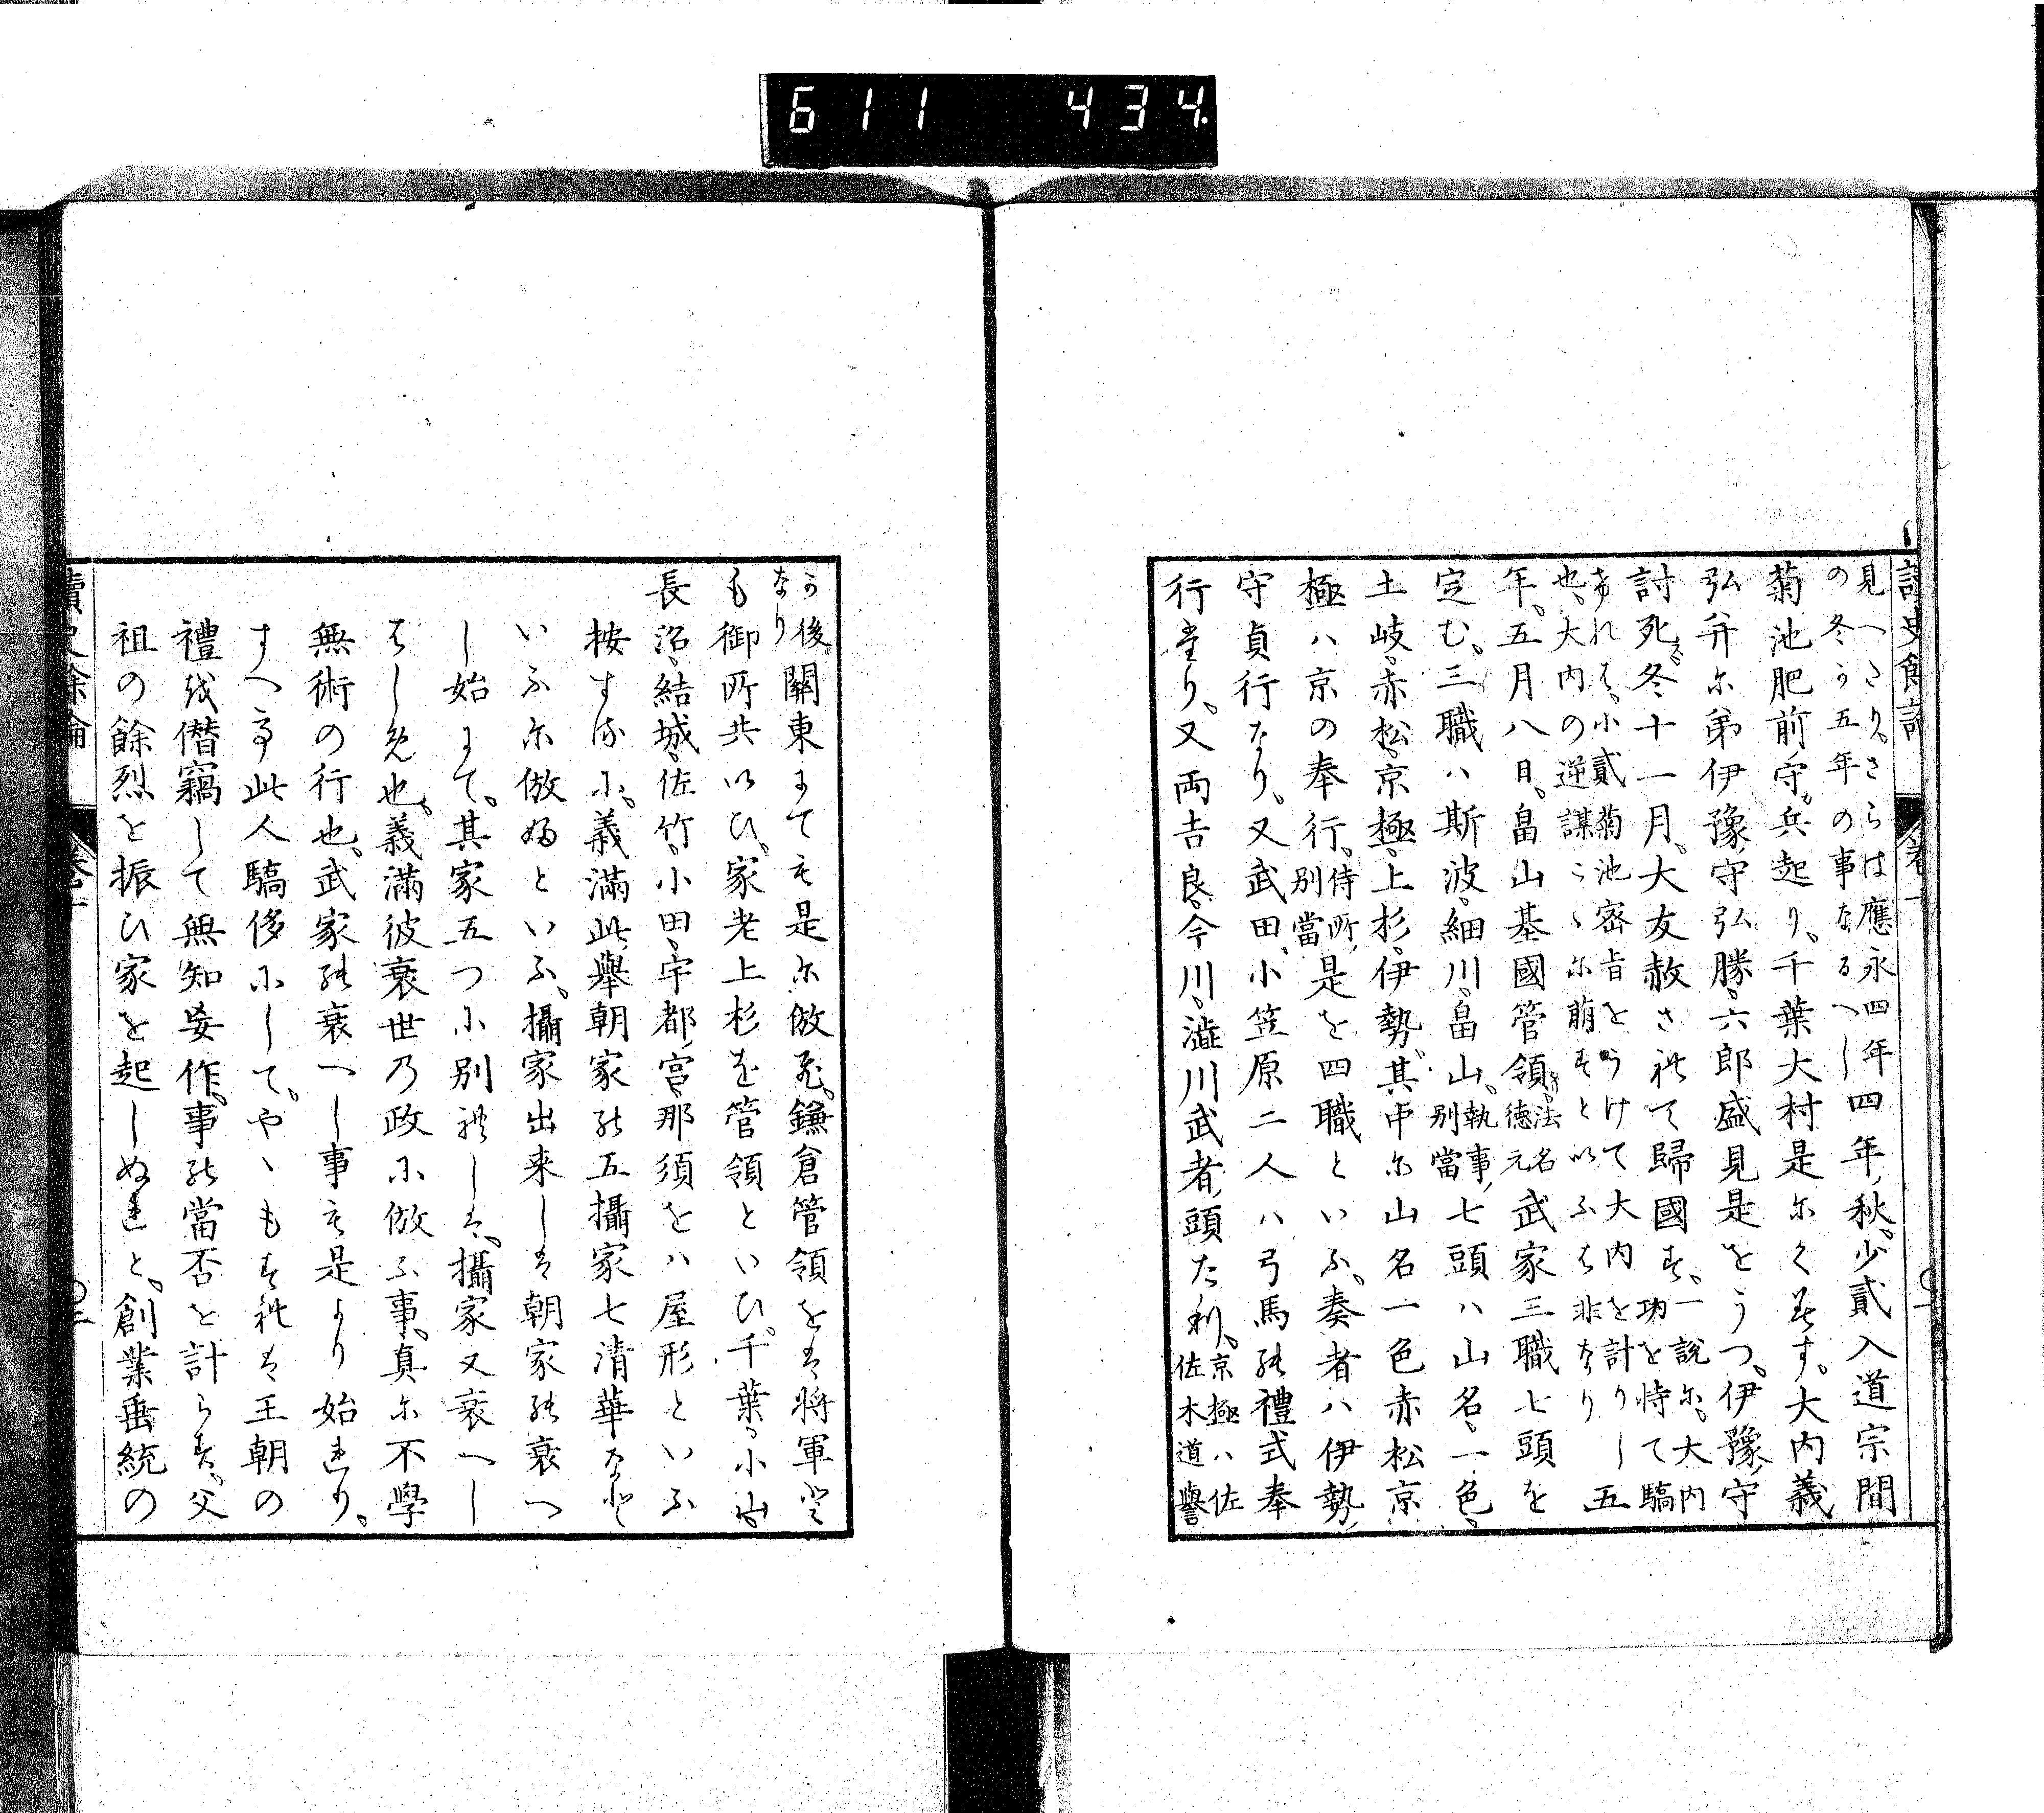 611 434.
讀史餘論 卷十
見へたり、さらは應永四年四年秋、少貳入道宗間
の冬か五年の事なるへし
菊池肥前守兵起り、千葉大村是にくみす、大内義
弘并に弟伊豫守弘勝、六郎盛見是をうつ、伊豫守
討死す、冬十一月、大友赦されて歸國す、一説に、大内功を恃て驕
けれは、小貳菊池密旨をうけて大内を計りし
也、大内の逆謀こゝに萠すと以ふは非なり五
年、五月八日、畠山基國管領す、法名德元武家三職七頭を
定む、三職ハ斯波、細川、畠山、執事別當七頭ハ山名、一色、
土岐、赤松、京極、上杉、伊勢、其中に山名一色赤松京
極ハ京の奉行、侍所別當是を四職といふ、奏者ハ伊勢
守貞行なり、又武田、小笠原二人ハ弓馬の禮式奉
行たり、又両吉良、今川、澁川武者頭たり、京極ハ佐佐木道譽
か後なり關東にても是に倣ひ、鎌倉管領をは将軍と
も御所共以ひ、家老上杉を管領といひ、千葉、小山
長沼、結城、佐竹、小田、宇都宮、那須をハ屋形といふ
按するに、義滿此舉朝家の五攝家七清華なと
いふに倣ぬといふ、攝家出来しは朝家の衰へ
し始にて、其家五つに別れしは、攝家又衰へし
はしめ也、義滿彼衰世乃政に倣ふ事、真に不學
無術の行也、武家の衰へし事も是より始れり、
すへて此人驕侈にして、やゝもすれは王朝の
禮を僭竊して無知妄作、事の當否を計らす、父
祖の餘烈を振ひ家を起しぬれと、創業垂統の
讀史餘論 卷十